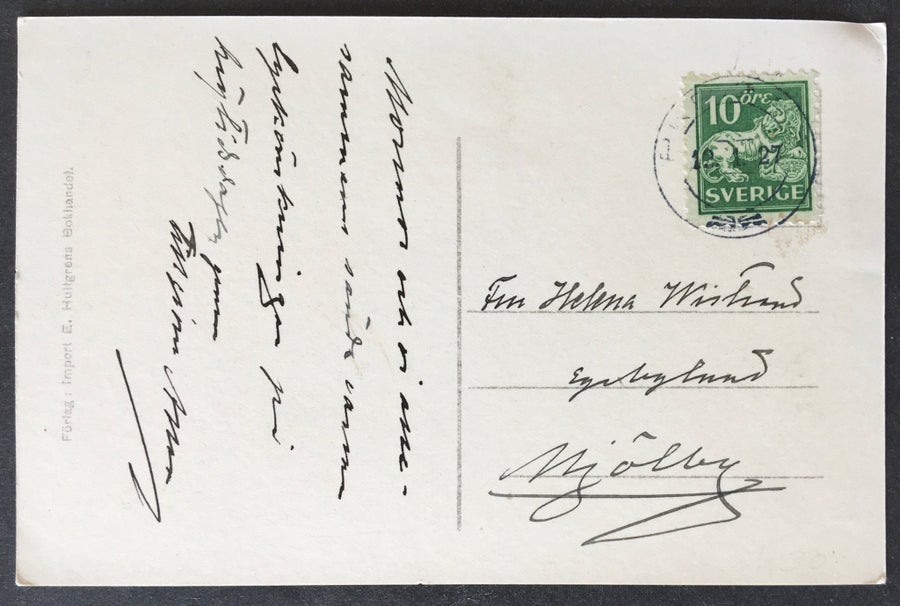 Mormor och vi alla-
sammans sända varma
lyckönskningar på
högtidsdagen genom
Förlag: Import E. Hultgrens Bokhandel.
10 öre
SVERIGE
27
Fru Helena Wistrand
Egebylund
Mjölby